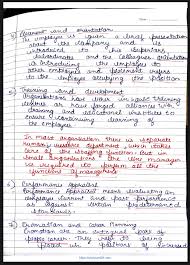 3) Placement and orientation
The employee is given a brief presentation
about the company and is
introduced to his superiors,
subordinates and the colleagues. Orientation
is introducing the employee to
other employees and placement refers
to the employee occupying the position
Training and development
Organisations have either in-house training
centres or have forged alliances with
training and educational institutes to
ensure continuous learning of
the employees
In most organisations there is separate
human resource department which takes
care of the staffing function. But in
small organisations the line manager
is required to perform all the
functions of management
6) Performance Appraisal
Performance Appraisal means evaluating an
employee current and past performance
as against certain predetermined
standards.
7) Promotion and career planning
Promotion are an integral part of
people career. They refer to being
placed in positions of increased